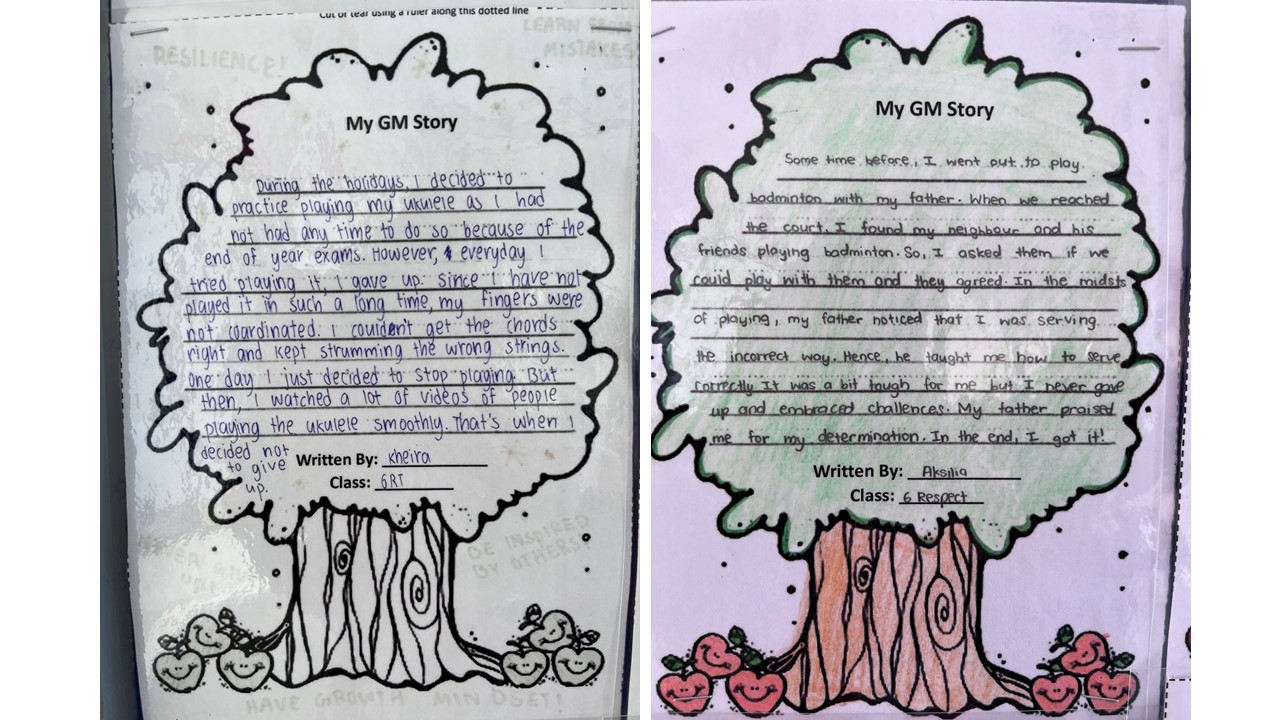 Cut or tear using a ruler along this dotted line
RESILIENCE!
LEARN FROM
MISTAKES
My GM Story
During the holidays, I decided to
practice playing my ukulele as I had
not had any time to do so because of the
end of year exams. However, everyday I
tried playing it, I gave up. Since I have not
played it in such a long time, my fingers were
not coordinated. I couldn't get the chords
right and kept strumming the wrong strings.
One day I just decided to stop playing. But
then, I watched a lot of videos of people
playing the ukulele smoothly. That's when I
decided not
to give
up.
Written By: kheira
Class: 6RT
NEVER GIVE
UP!
BE INSPIRED
BY OTHERS!
HAVE GROWTH MINDSET!
My GM Story
Some time before, I went out to play
badminton with my father. When we reached
the court, I found my neighbour and his
friends playing badminton. So, I asked them if we
could play with them and they agreed. In the midsts
of playing, my father noticed that I was serving
the incorrect way. Hence, he taught me how to serve
correctly. It was a bit tough for me but I never gave
up and embraced challences. My father praised
me for my determination. In the end, I got it!
Written By: Aksilia
Class: 6 Respect